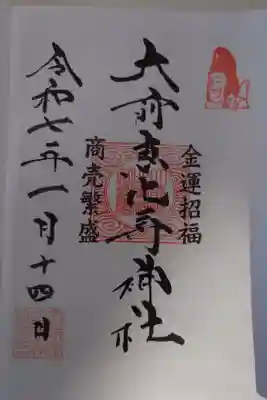 大前恵比寿神社
金運招福
商売繁盛
令和七年一月十四日